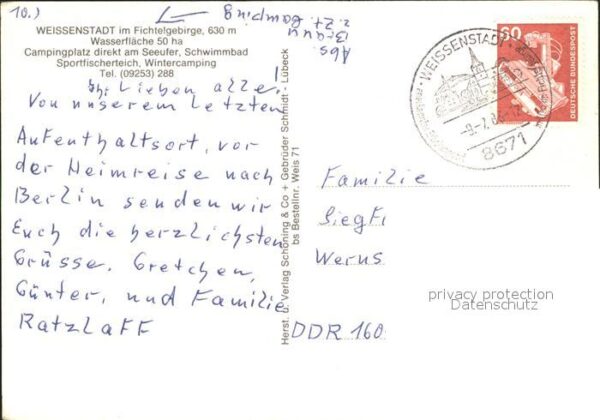 10.)
Abs. Braun
z. Zt. Camping
WEISSENSTADT im Fichtelgebirge, 630 m
Wasserfläche 50 ha
Campingplatz direkt am Seeufer, Schwimmbad
Sportfischerteich, Wintercamping
Tel. (09253) 288
Lieben alle!
Von unserem letzten
Aufenthaltsort, vor
der Heimreise nach
Berlin senden wir
Euch die herzlichsten
Grüsse. Gretchen,
Günter, und Familie
RatzlaFF
Herst. u. Verlag Schöning & Co + Gebrüder Schmidt - Lübeck
bs Bestellnr. Weis 71
60
DEUTSCHE BUNDESPOST
WEISSENSTADT
8671
Familie
SiegFr
Werns
DDR 160
privacy protection
Datenschutz